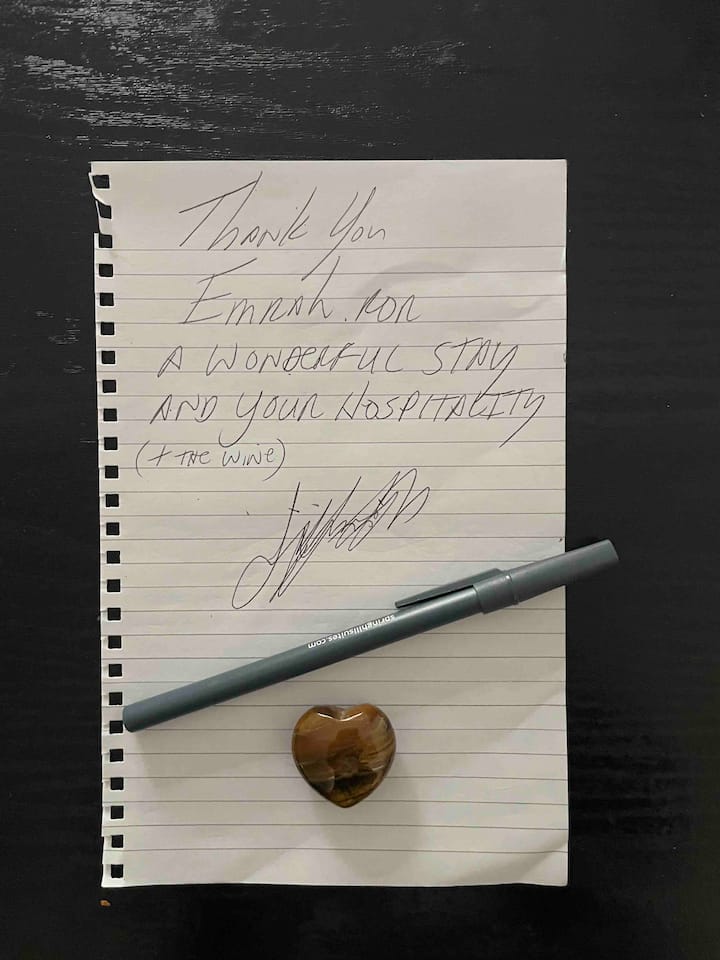 Thank You
Emrah. for
A WONDERFUL STAY
AND YOUR HOSPITALITY
(+ THE WINE)
springhillsuites.com